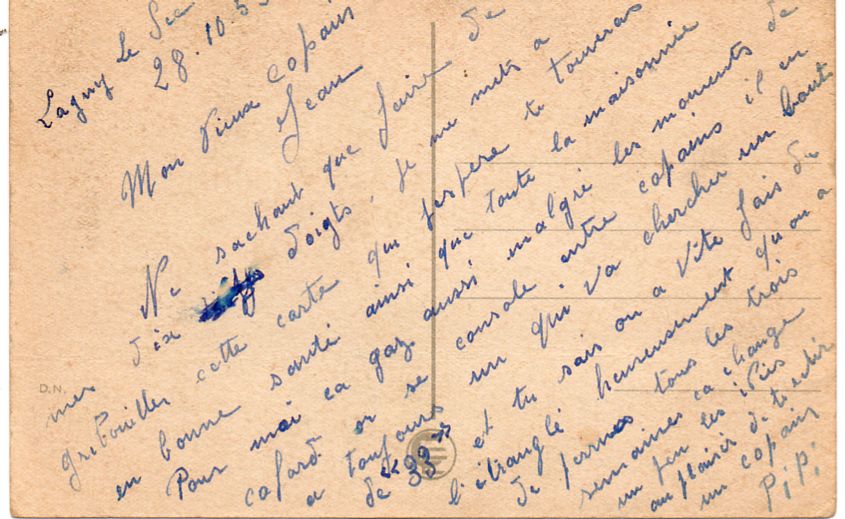 Lagny Le Sec
28.10.5
Mon Vieux Copain
Jean
Ne sachant que faire de
mes dix doigts, je me mets a
gribouiller cette carte qui j'espere te trouveras
en bonne santé ainsi que toute la maisonnée
Pour moi ca gaz aussi malgré les moments de
cafard or se console entre copains il en
a toujours un qui va chercher un bouts
de "33" et tu sais on a vite fais de
l'étranglé heureusement qu'on a
de permes tous les trois
semaines ca change
un peu les idées
au plaisir de te
un copain
PiPi
D.N.